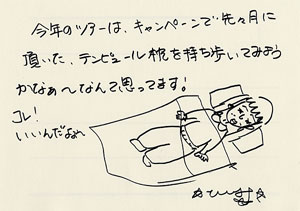 今年のツアーは、キャンペーンで先々月に
頂いた、テンピュール枕を持ち歩いてみよう
かなぁ〜なんて思ってます!
コレ!
いいんだよねぇ